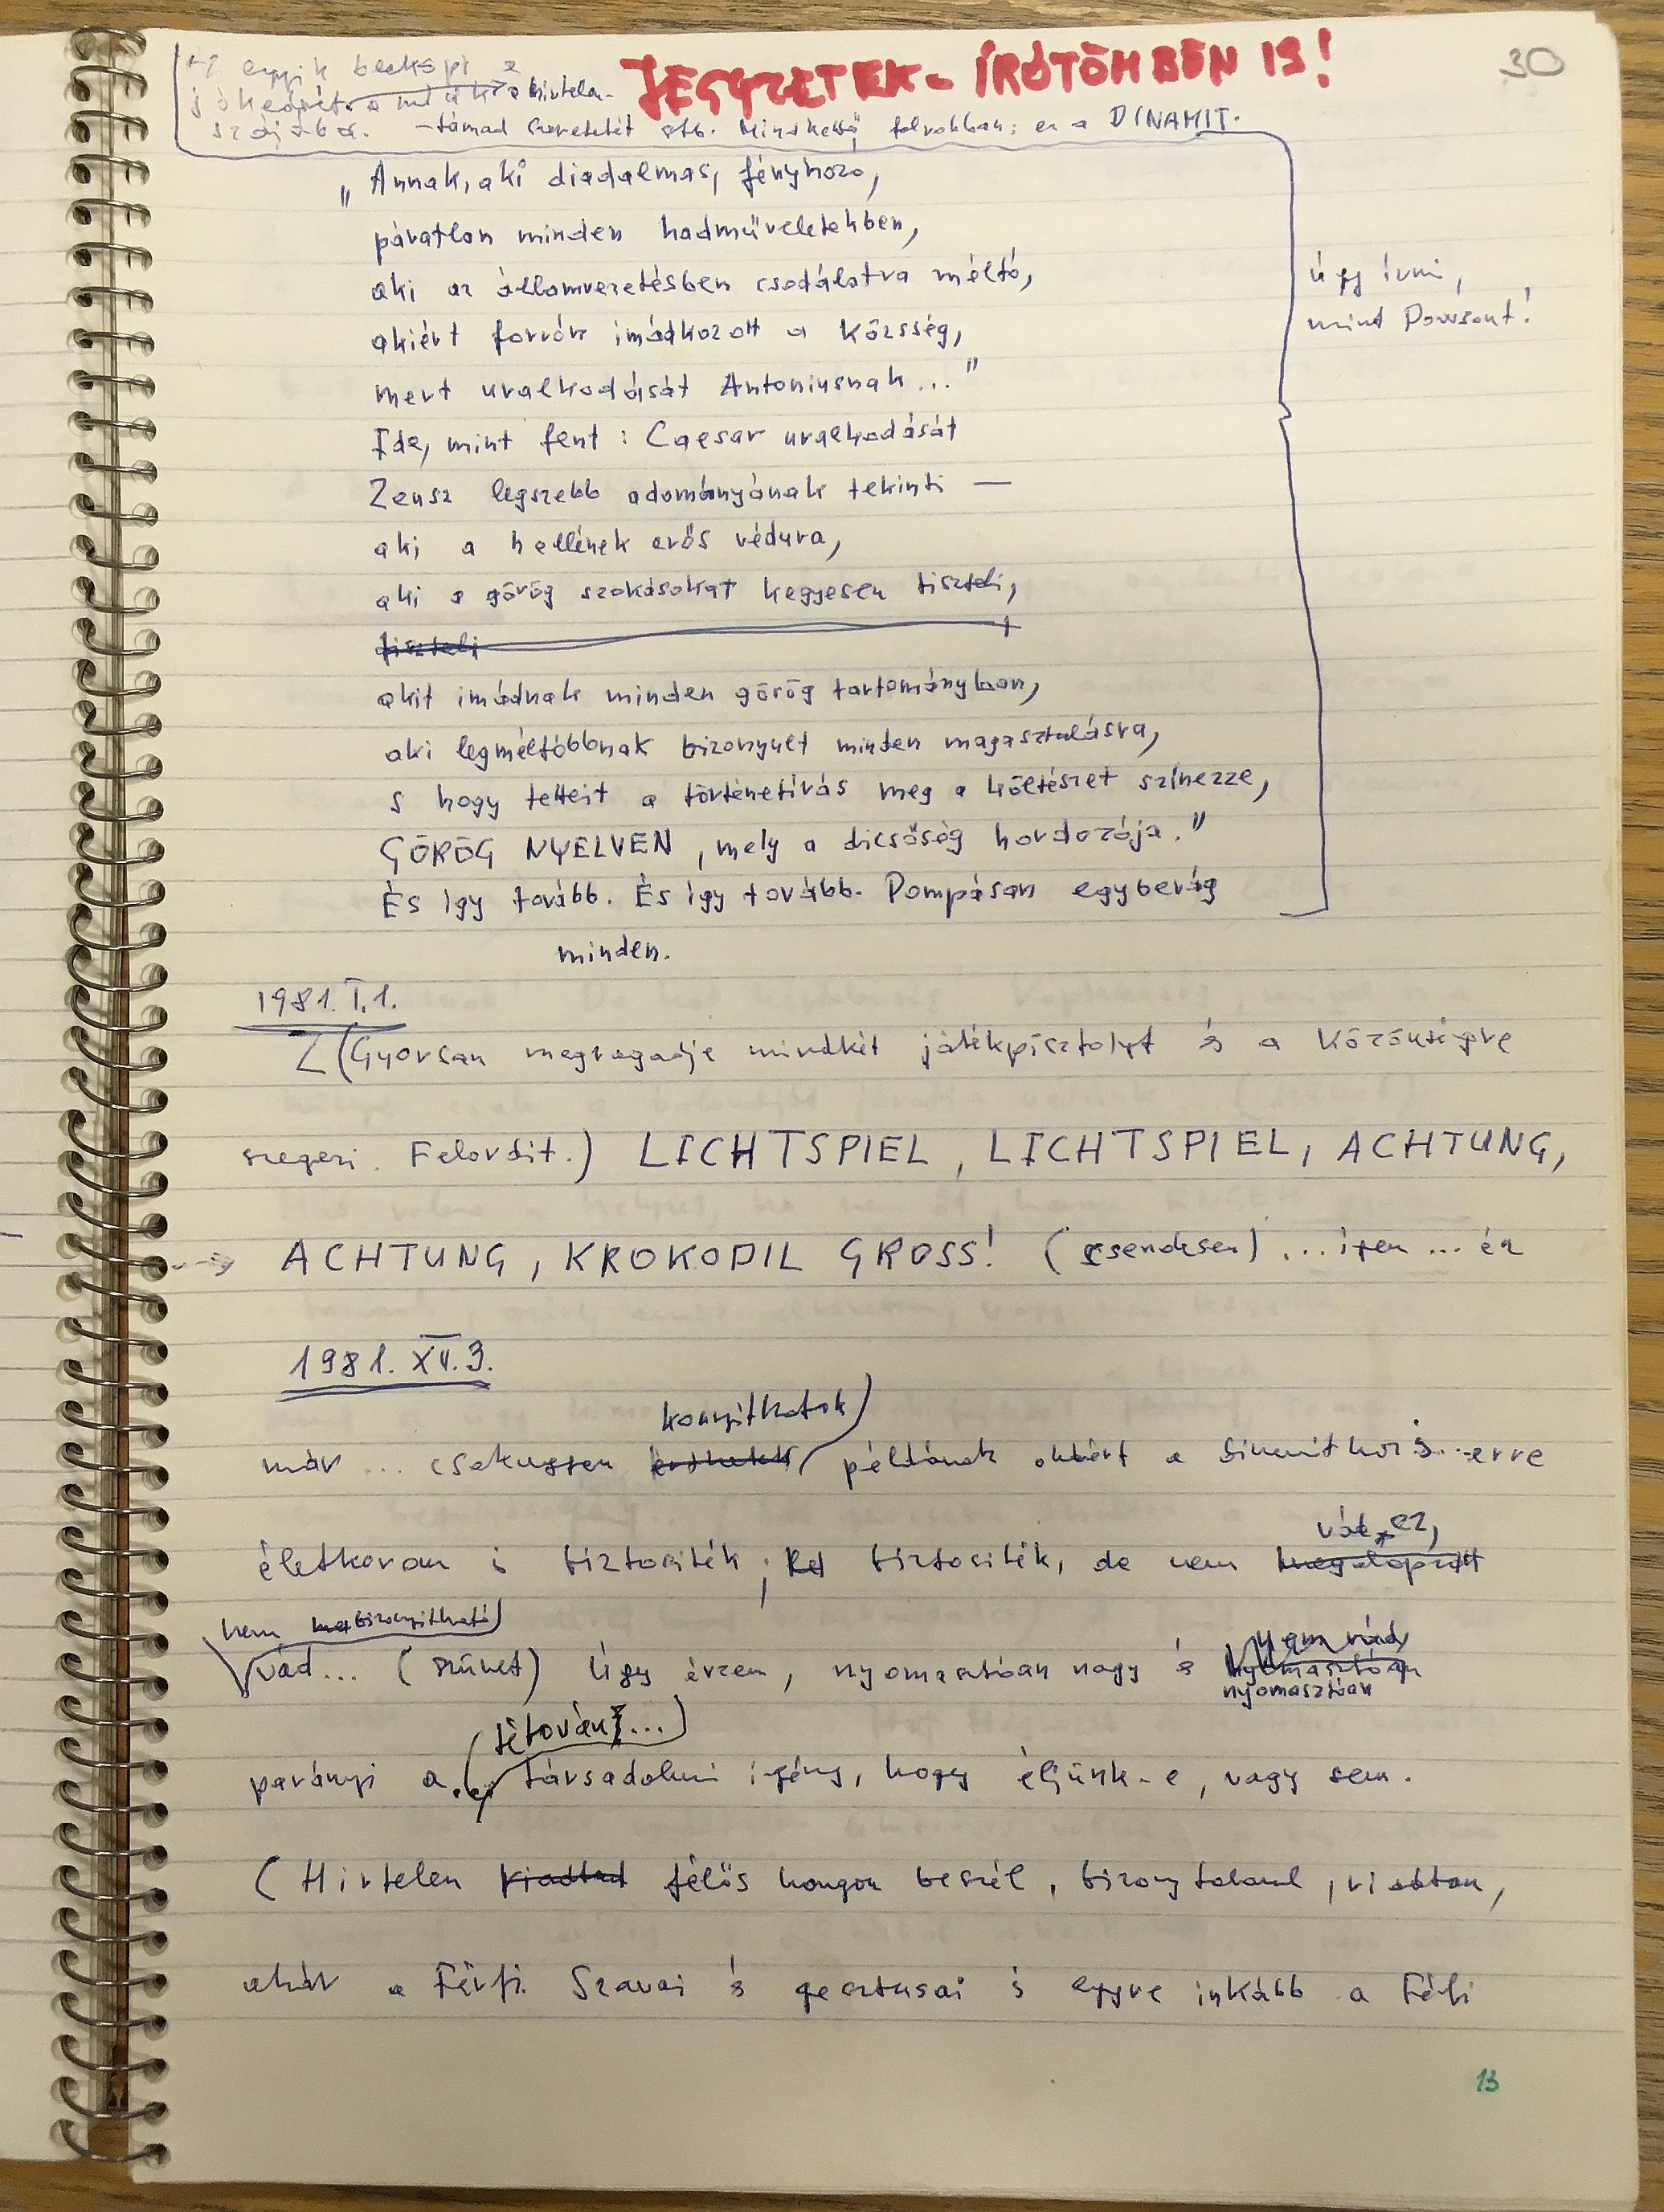 30
JEGYZETEK - ÍRÓTÖMBÖN IS!
az egyik bekapj a
a hirtelen
szájába. - támad szeretetét stb. Mindkettő folyvában: ez a DINAMIT.
„Annak, aki diadalmas, fényhozó,
páratlan minden hadműveletekben,
aki az államvezetésben csodálatra méltó,
akiért forrón imádkozott a község,
mert uralkodását Antoniusnak..."
Ide, mint fent: Caesar uralkodását
Zeusz legszebb adományának tekinti —
aki a hellének erős védura,
aki a görög szokásokat kegyesen tiszteli,
tiszteli
akit imádnak minden görög tartományban,
aki legméltóbbnak bizonyult minden magasztalásra,
s hogy tetteit a történetírás meg a költészet színezze,
GÖRÖG NYELVEN, mely a dicsőség hordozója."
És így tovább. És így tovább. Pompásan egybevág
minden.
úgy írni,
mint
1981. I. 1.
(Gyorsan megragadja mindkét játékpisztolyt és a közönségre
szegezi. Felordít.) LICHTSPIEL, LICHTSPIEL, ACHTUNG,
ACHTUNG, KROKODIL GROSS! (csendesen) ... igen ... én
1981. XII. 3.
konyíthatok
már ... csakugyan példának okáért a ... erre
vád ez,
életkorom is biztosíték; biztosíték, de nem
nem bebizonyítható
vád... (szünet) Úgy érzem, nyomasztóan nagy és nyomasztóan
Nem vád
nyomasztóan
tétován...
parányi a... társadalmi igény, hogy éljünk-e, vagy sem.
(Hirtelen kiadtad félős hangon beszél, bizonytalanul, riadtan,
akár a Férfi. Szavai és gesztusai is egyre inkább a Férfi
13